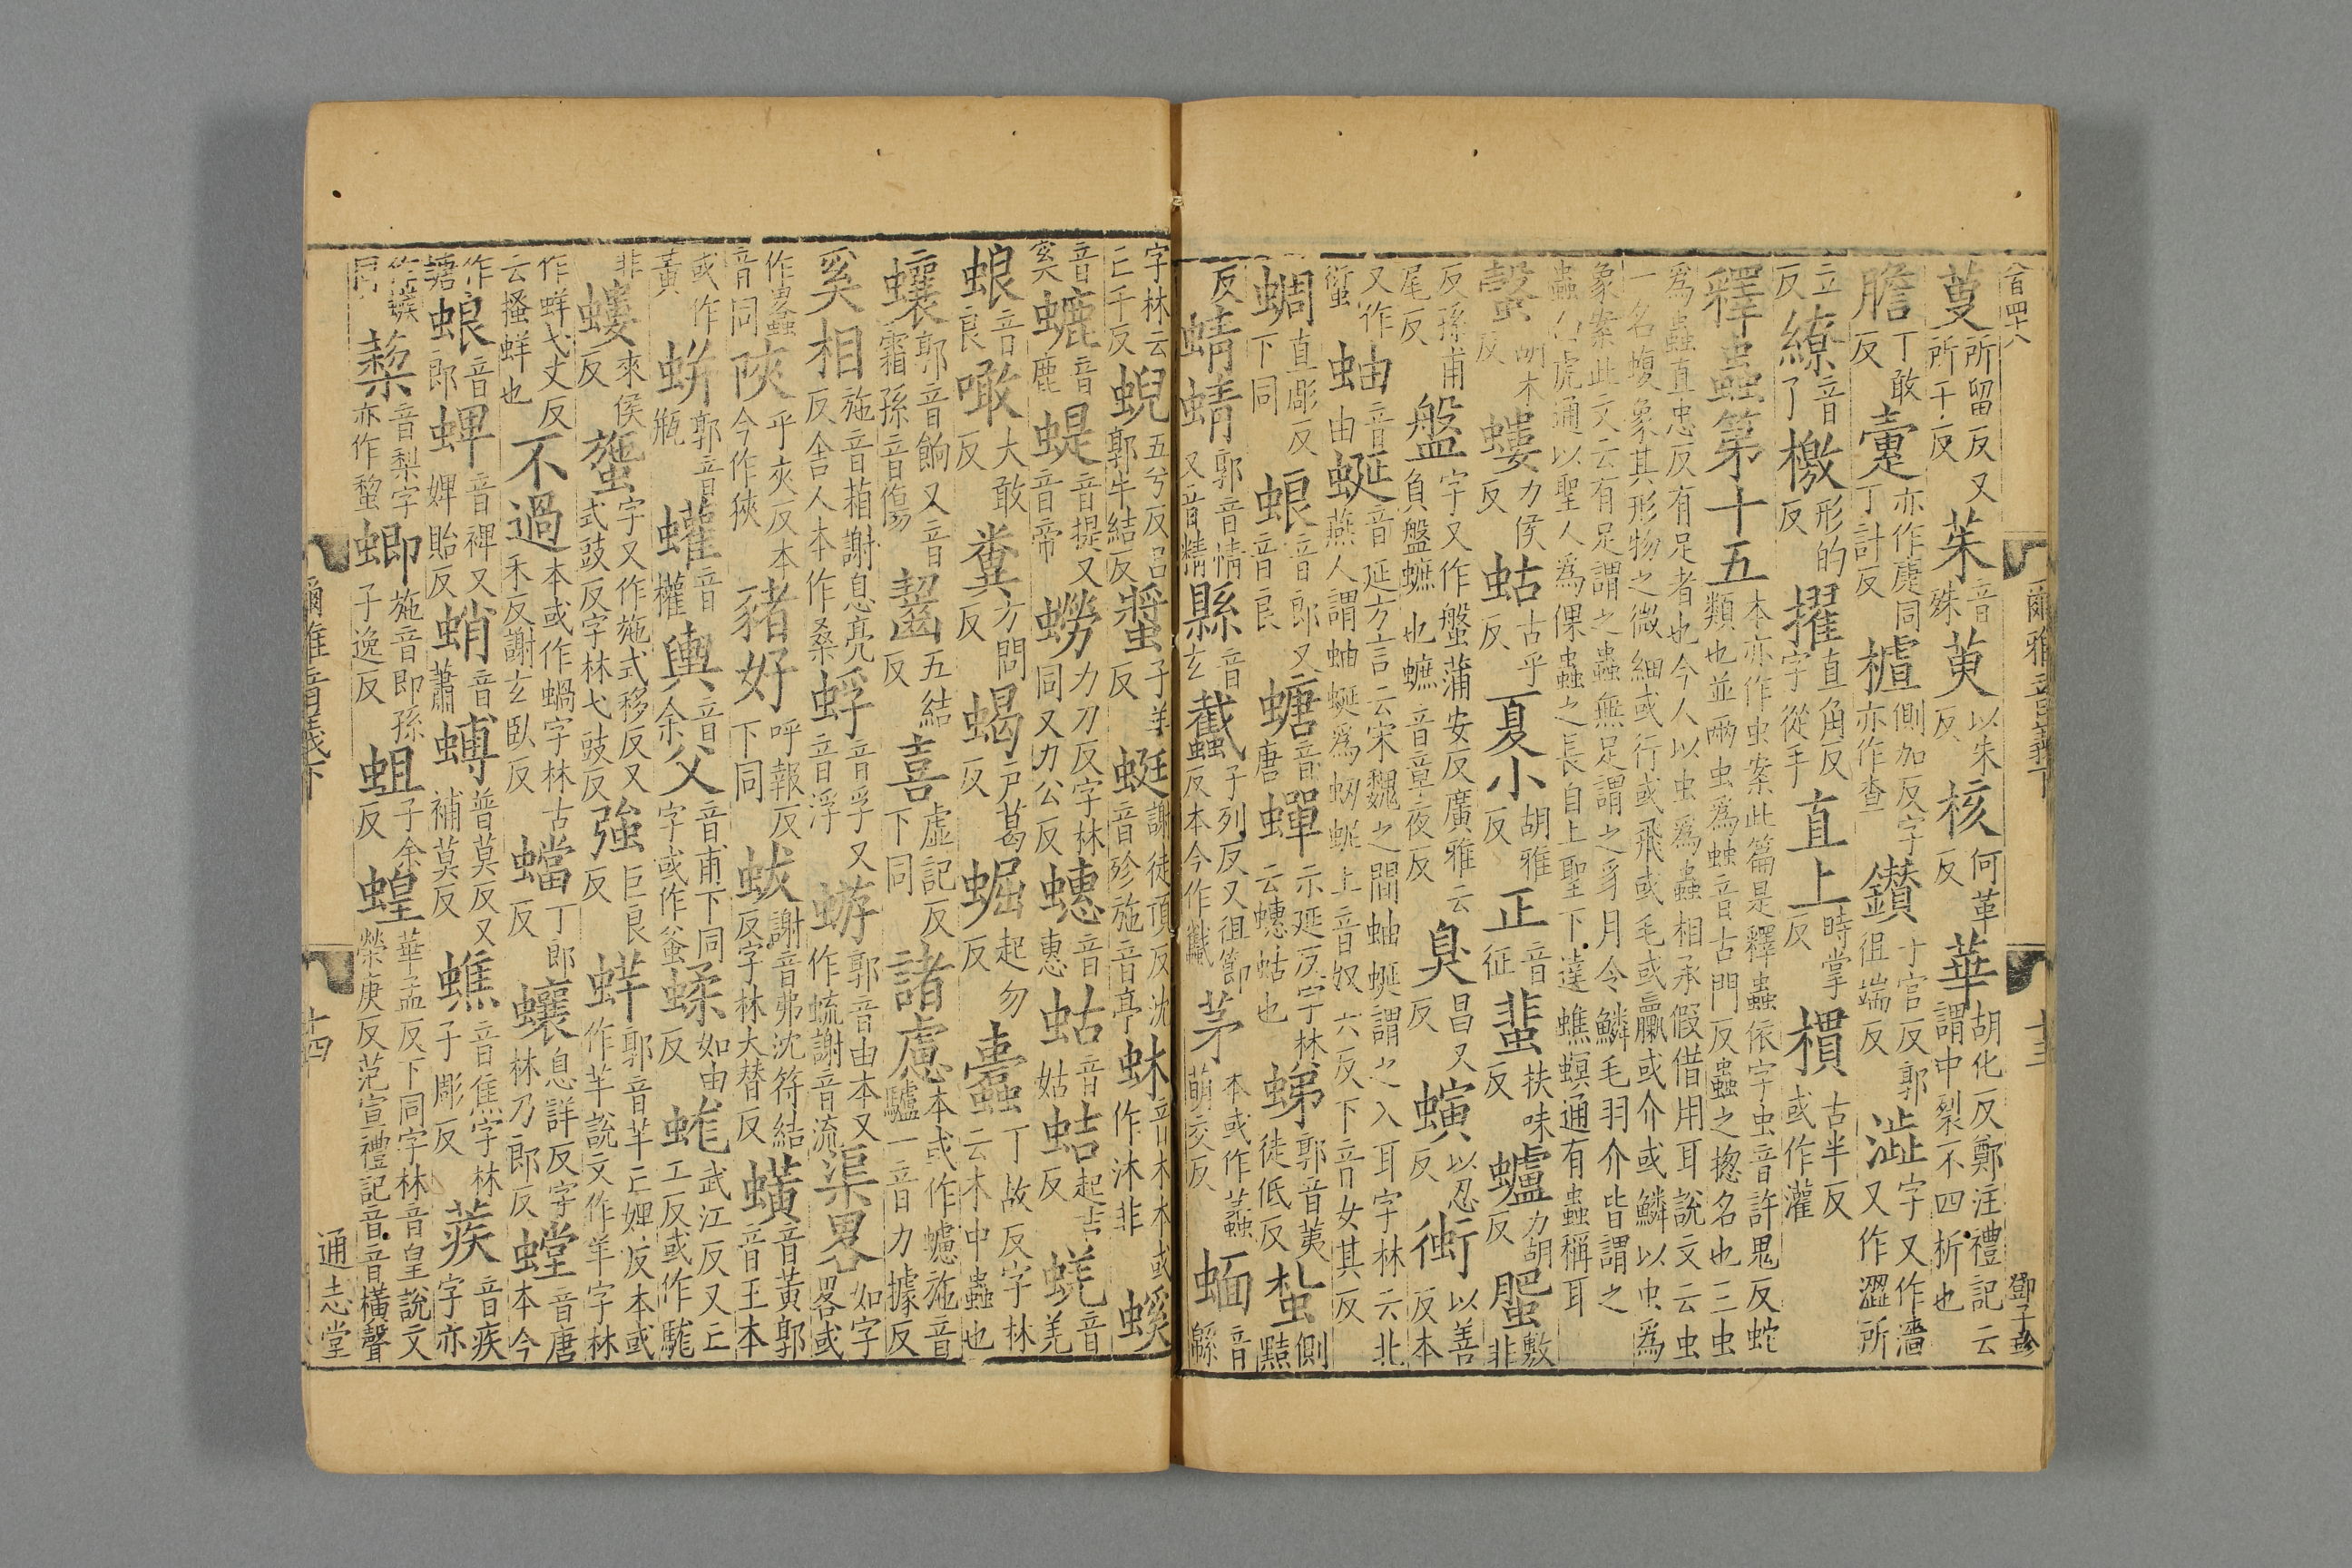 百四十八
爾雅音義下
十三
鄧子珍
蔓所留反又所干反茱音殊萸以朱反核何革反華胡化反鄭注禮記云謂中裂不四折也
膽丁敢反疐亦作疌同丁計反樝側加反字亦作查鑽子官反郭徂端反澁字又作濇又作澀所
立反繚音了檄形的反擢直角反字從手直上時掌反樌古半反或作灌
釋蟲第十五本亦作虫案此篇是釋蟲依字虫音許鬼反蛇類也並兩虫為䖵音古門反蟲之揔名也三虫
為蟲直忠反有足者也今人以虫為蟲相承假借用耳說文云虫一名蝮象其形物之微細或行或飛或毛或蠃或介或鱗以虫為
象案此文云有足謂之蟲無足謂之豸月令鱗毛羽介皆謂之蟲白虎通以聖人為倮蟲之長自上聖下達蟭螟通有蟲稱耳
螜胡木反螻力侯反蛄古乎反夏小胡雅反正音征蜚扶味反蠦力胡反蜰敷非
反孫甫尾反盤字又作螌蒲安反廣雅云負盤蟅也蟅音章夜反臭昌又反螾以忍反衝以善反本
又作蚿蚰音由蜒音延方言云宋魏之間蚰蜒謂之入耳字林云北燕人謂蚰蜒為䖡蚭上音奴六反下音女其反
蜩直彫反下同蜋音郎又音良螗音唐蟬示延反字林云蟪蛄也蝭郭音荑徒低反蚻側黠
反蜻蜻郭音情又音精縣音玄蠽子列反又徂節反本今作䘁茅本或作蟊萌交反蝒音緜
字林云亡千反蜺五兮反呂郭牛結反螿子羊反蜓謝徒頂反沈音殄施音亭蚞音木本或作沐非螇
音奚螰音鹿蝭音提又音帝蟧力刀反字林同又力公反蟪音惠蛄音姑蛣起吉反蜣音羌
蜋音良噉大敢反糞方問反蝎戶葛反蝠起勿反蠹丁故反字林云木中蟲也
蠰郭音餉又音霜孫音傷齧五結反喜虛記反下同諸慮本或作蠩施音驢一音力據反
奚相施音葙謝息亮反舍人本作桑蜉音孚又音浮蝣郭音由本又作蝣謝音流渠畧如字畧或
作䗉音同陜乎夾反本今作狹豬好呼報反下同蛂謝音弗沈符結反字林大替反蟥音黃郭音王本
或作黃蛢郭音瓶蠸音權輿音余父音甫下同字或作蚥蝚如由反蛖武江反又亡工反或作駹
非螻來侯反蜤字又作施式移反又式豉反字林弋豉反強巨良反蛘郭音羊亡婢反本或作羊說文作蛘字林
作蛘弋丈反云搔蛘也不過本或作蝸字林古禾反謝玄臥反蟷丁郎反蠰息詳反字林乃郎反螳音唐本今
作螗蜋音郎蜱音裨又婢貽反蛸音蕭蟳普莫反又補莫反蟭音焦字林子彫反蒺音疾字亦
作蒺同蔾音梨字亦作犂蝍施音即孫子逸反蛆子余反蝗華孟反下同字林音皇說文榮庚反范宣禮記音音橫聲
爾雅音義下
十四
通志堂